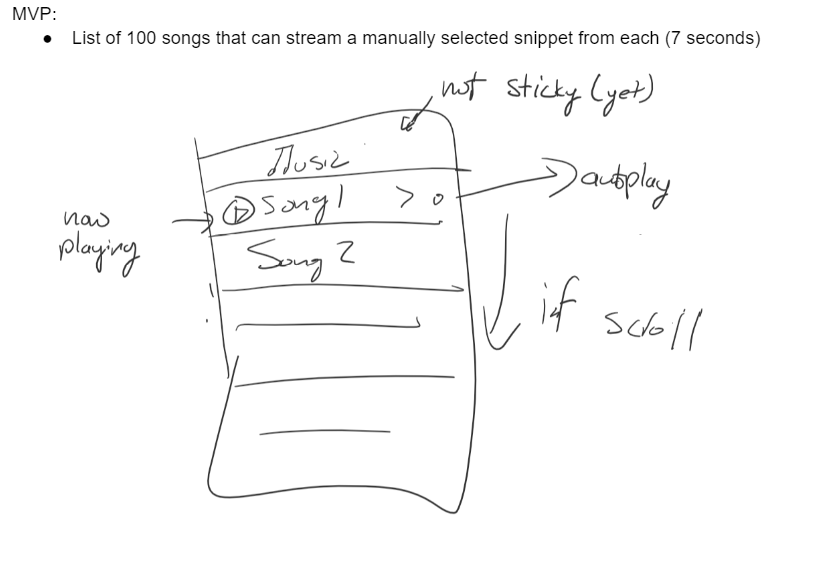 MVP:
• List of 100 songs that can stream a manually selected snippet from each (7 seconds)
not sticky (yet)
Music
autoplay
Song 1 >
now
playing
Song 2
if scroll